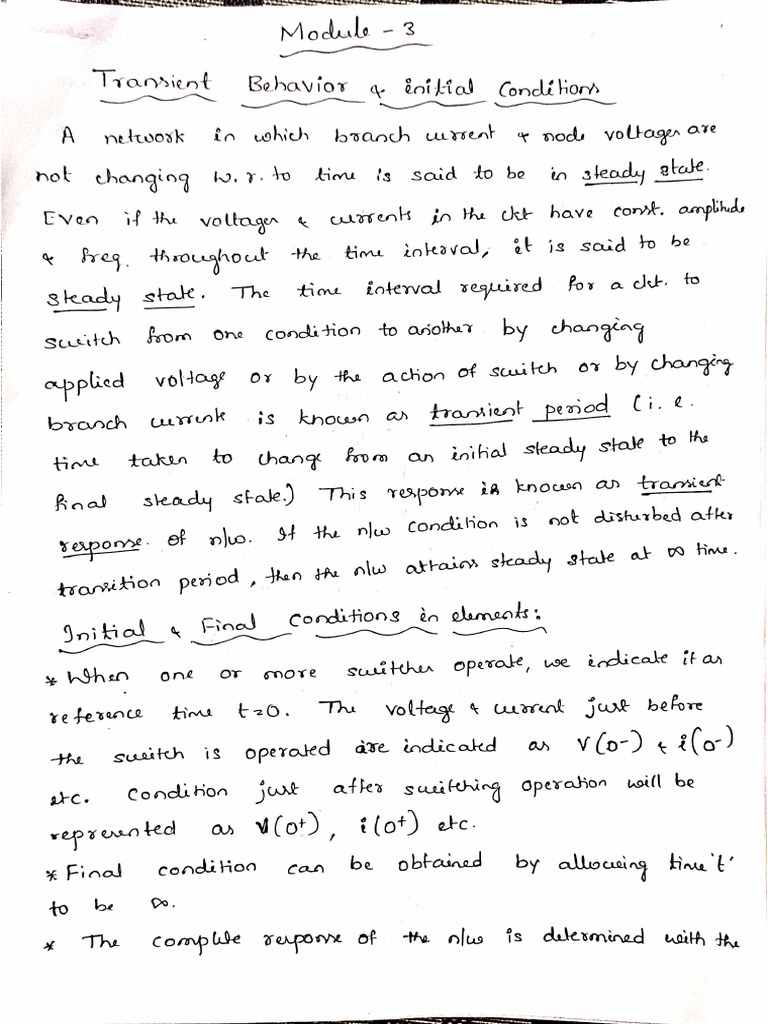 Module - 3
Transient Behavior & initial Conditions
A network in which branch current & node voltages are
not changing w.r.to time is said to be in steady state.
Even if the voltages & currents in the ckt have const. amplitude
& freq. throughout the time interval, it is said to be
steady state. The time interval required for a ckt. to
switch from one condition to another by changing
applied voltage or by the action of switch or by changing
branch currents is known as transient period (i.e.
time taken to change from an initial steady state to the
final steady state.) This response is known as transient
response. of n/w. If the n/w condition is not disturbed after
transition period, then the n/w attains steady state at ∞ time.
Initial & Final Conditions in elements:
* When one or more switches operate, we indicate it as
reference time t=0. The voltage & current just before
the switch is operated are indicated as V(0-) & i(0-)
etc. Condition just after switching operation will be
represented as V(0+), i(0+) etc.
* Final condition can be obtained by allowing time 't'
to be ∞.
* The complete response of the n/w is determined with the